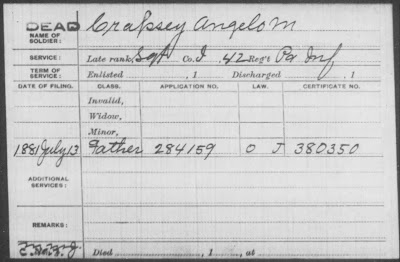 DEAD
NAME OF SOLDIER: Crapsey Angelo M
SERVICE: Late rank, Sgt Co. I, 42 Reg't Pa Inf
TERM OF SERVICE: Enlisted , 1 Discharged , 1
DATE OF FILING. CLASS. APPLICATION NO. LAW. CERTIFICATE NO.
Invalid,
Widow,
Minor,
1881 July 13 Father 284159 O J 380350
ADDITIONAL SERVICES:
REMARKS:
Died , 1 , at